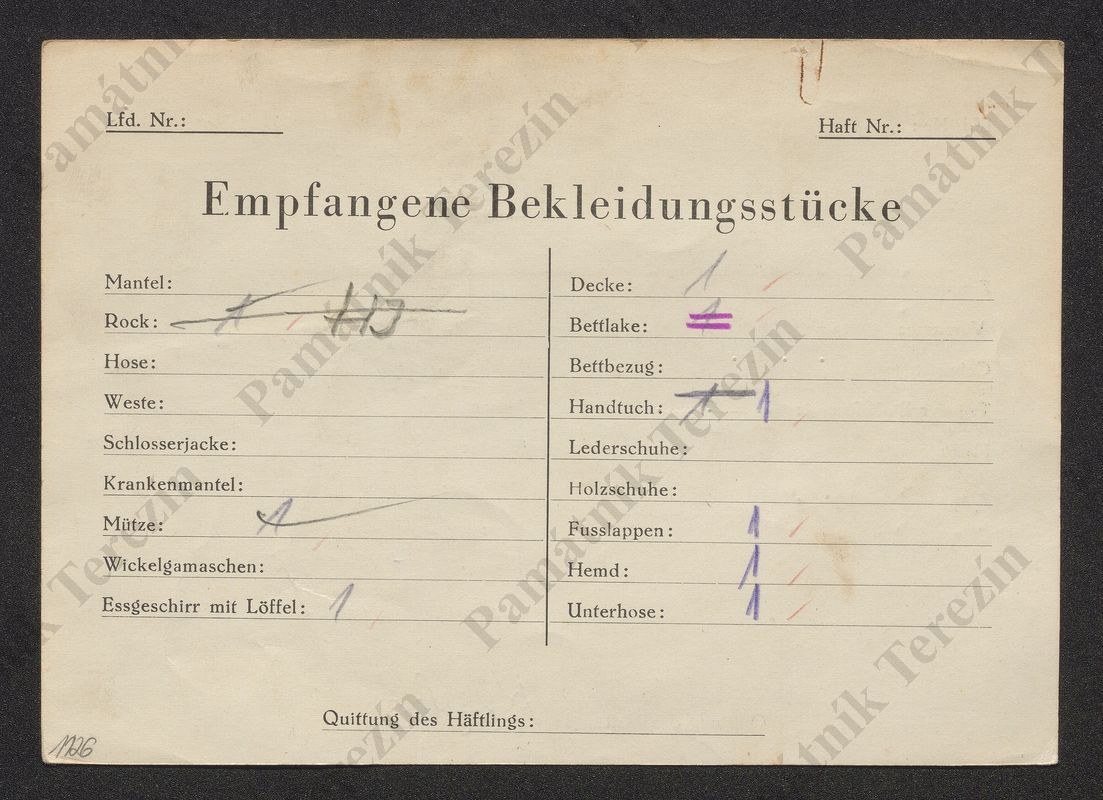 Lfd. Nr.:
Haft Nr.:
Empfangene Bekleidungsstücke
Mantel:
Rock: 1
Hose:
Weste:
Schlosserjacke:
Krankenmantel:
Mütze: 1
Wickelgamaschen:
Essgeschirr mit Löffel: 1
Decke: 1
Bettlake: 1
Bettbezug:
Handtuch: 1 1
Lederschuhe:
Holzschuhe:
Fusslappen: 1
Hemd: 1
Unterhose: 1
Quittung des Häftlings:
1126
Památník Terezín